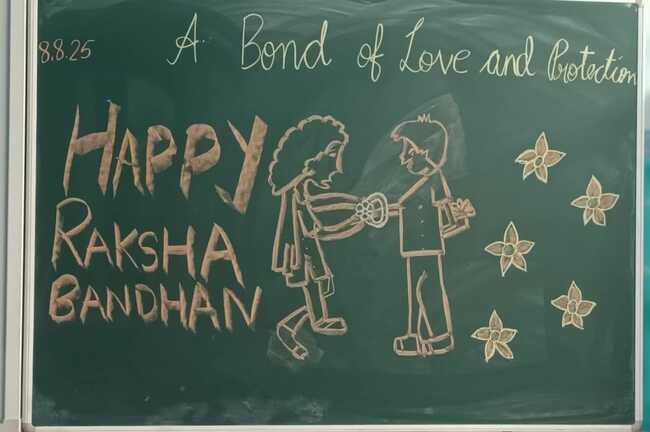 8.8.25
A Bond of Love and Protection
HAPPY
RAKSHA
BANDHAN